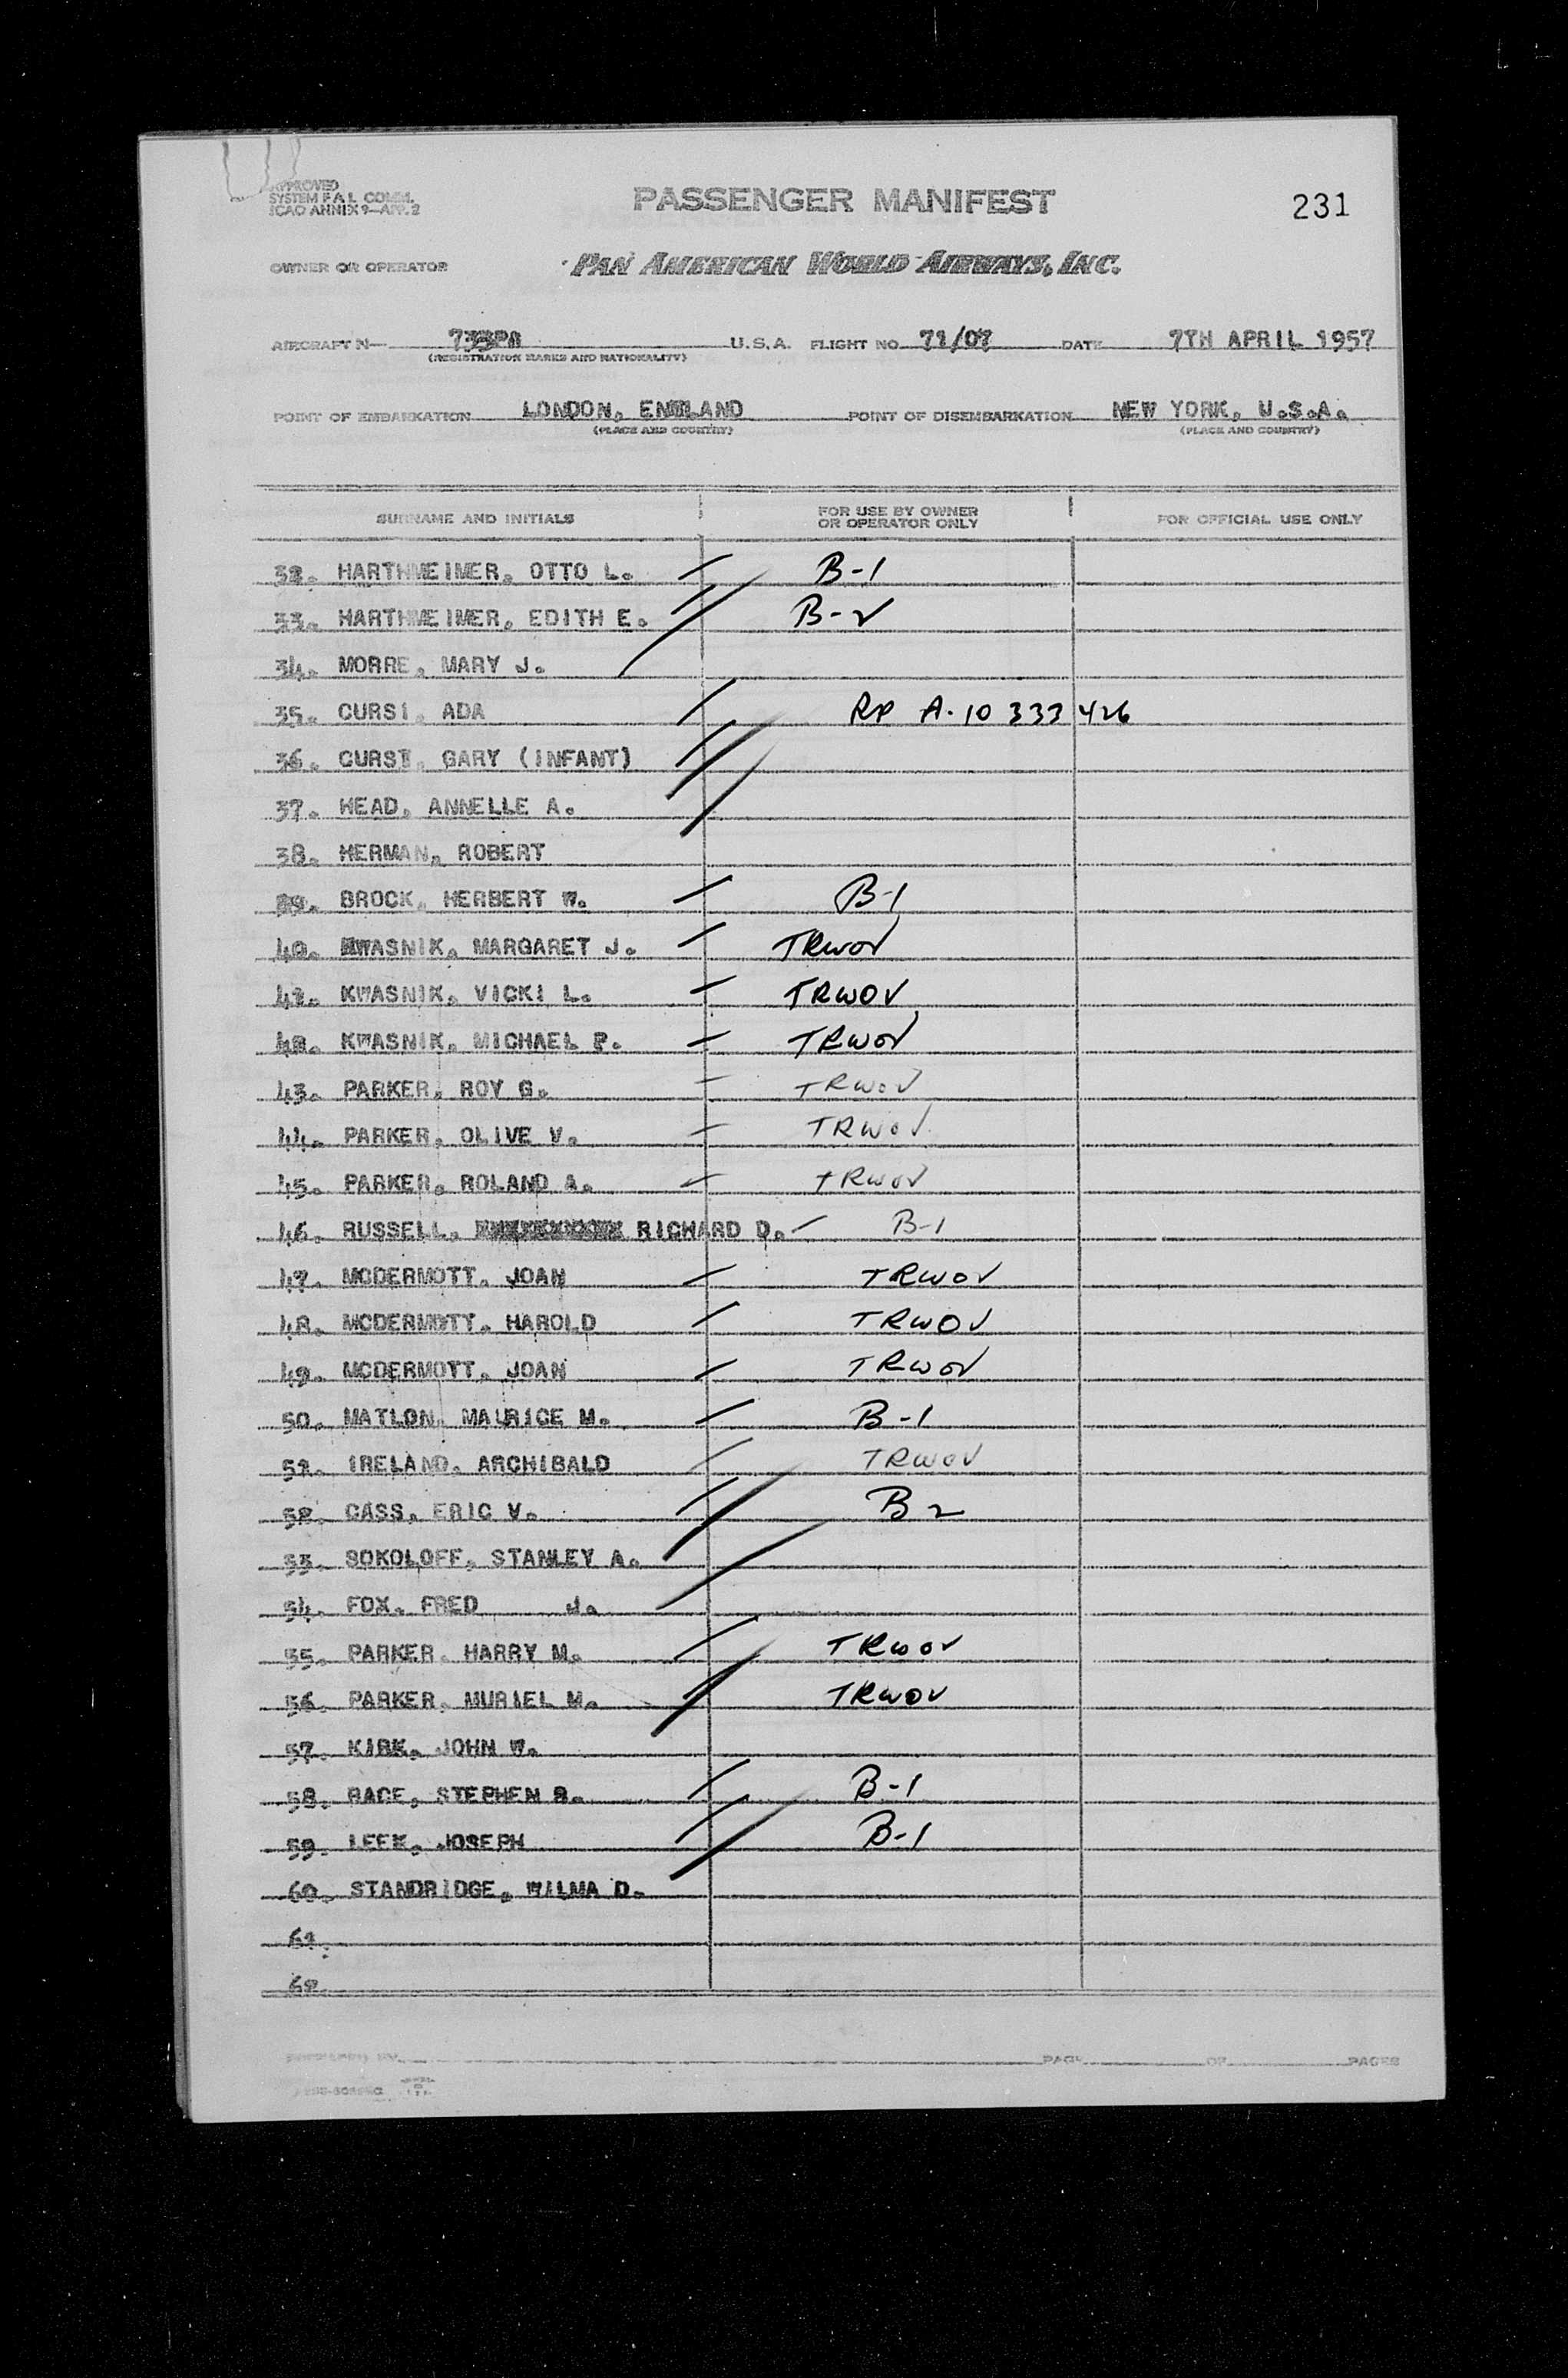 APPROVED
SYSTEM F A L COMM.
ICAO ANNIX 9—APP. 2
PASSENGER MANIFEST
231
OWNER OR OPERATOR PAN AMERICAN WORLD AIRWAYS, INC.
AIRCRAFT N— U.S.A. FLIGHT NO. 71/07 DATE 7TH APRIL 1957
(REGISTRATION MARKS AND NATIONALITY)
POINT OF EMBARKATION LONDON, ENGLAND POINT OF DISEMBARKATION NEW YORK, U.S.A.
(PLACE AND COUNTRY) (PLACE AND COUNTRY)
SURNAME AND INITIALS FOR USE BY OWNER OR OPERATOR ONLY FOR OFFICIAL USE ONLY
32. HARTHMEIMER, OTTO L. B-1
33. HARTHMEIMER, EDITH E. B-2
34. MORRE, MARY J.
35. CURSI, ADA RP A-10 333 426
36. CURSI, GARY (INFANT)
37. HEAD, ANNELLE A.
38. HERMAN, ROBERT
39. BROCK, HERBERT W. B-1
40. KWASNIK, MARGARET J. TRWOV
41. KWASNIK, VICKI L. TRWOV
42. KWASNIK, MICHAEL P. TRWOV
43. PARKER, ROY G. TRWOV
44. PARKER, OLIVE V. TRWOV
45. PARKER, ROLAND A. TRWOV
46. RUSSELL, RICHARD D. B-1
47. MCDERMOTT, JOAN TRWOV
48. MCDERMOTT, HAROLD TRWOV
49. MCDERMOTT, JOAN TRWOV
50. MATLON, MAURICE M. B-1
51. IRELAND, ARCHIBALD TRWOV
52. CASS, ERIC V. B2
53. SOKOLOFF, STANLEY A.
54. FOX, FRED J.
55. PARKER, HARRY M. TRWOV
56. PARKER, MURIEL M. TRWOV
57. KIRK, JOHN W.
58. RACE, STEPHEN B-1
59. LEEK, JOSEPH B-1
60. STANDRIDGE, WILMA D.
61.
62.
PAGE OF PAGES